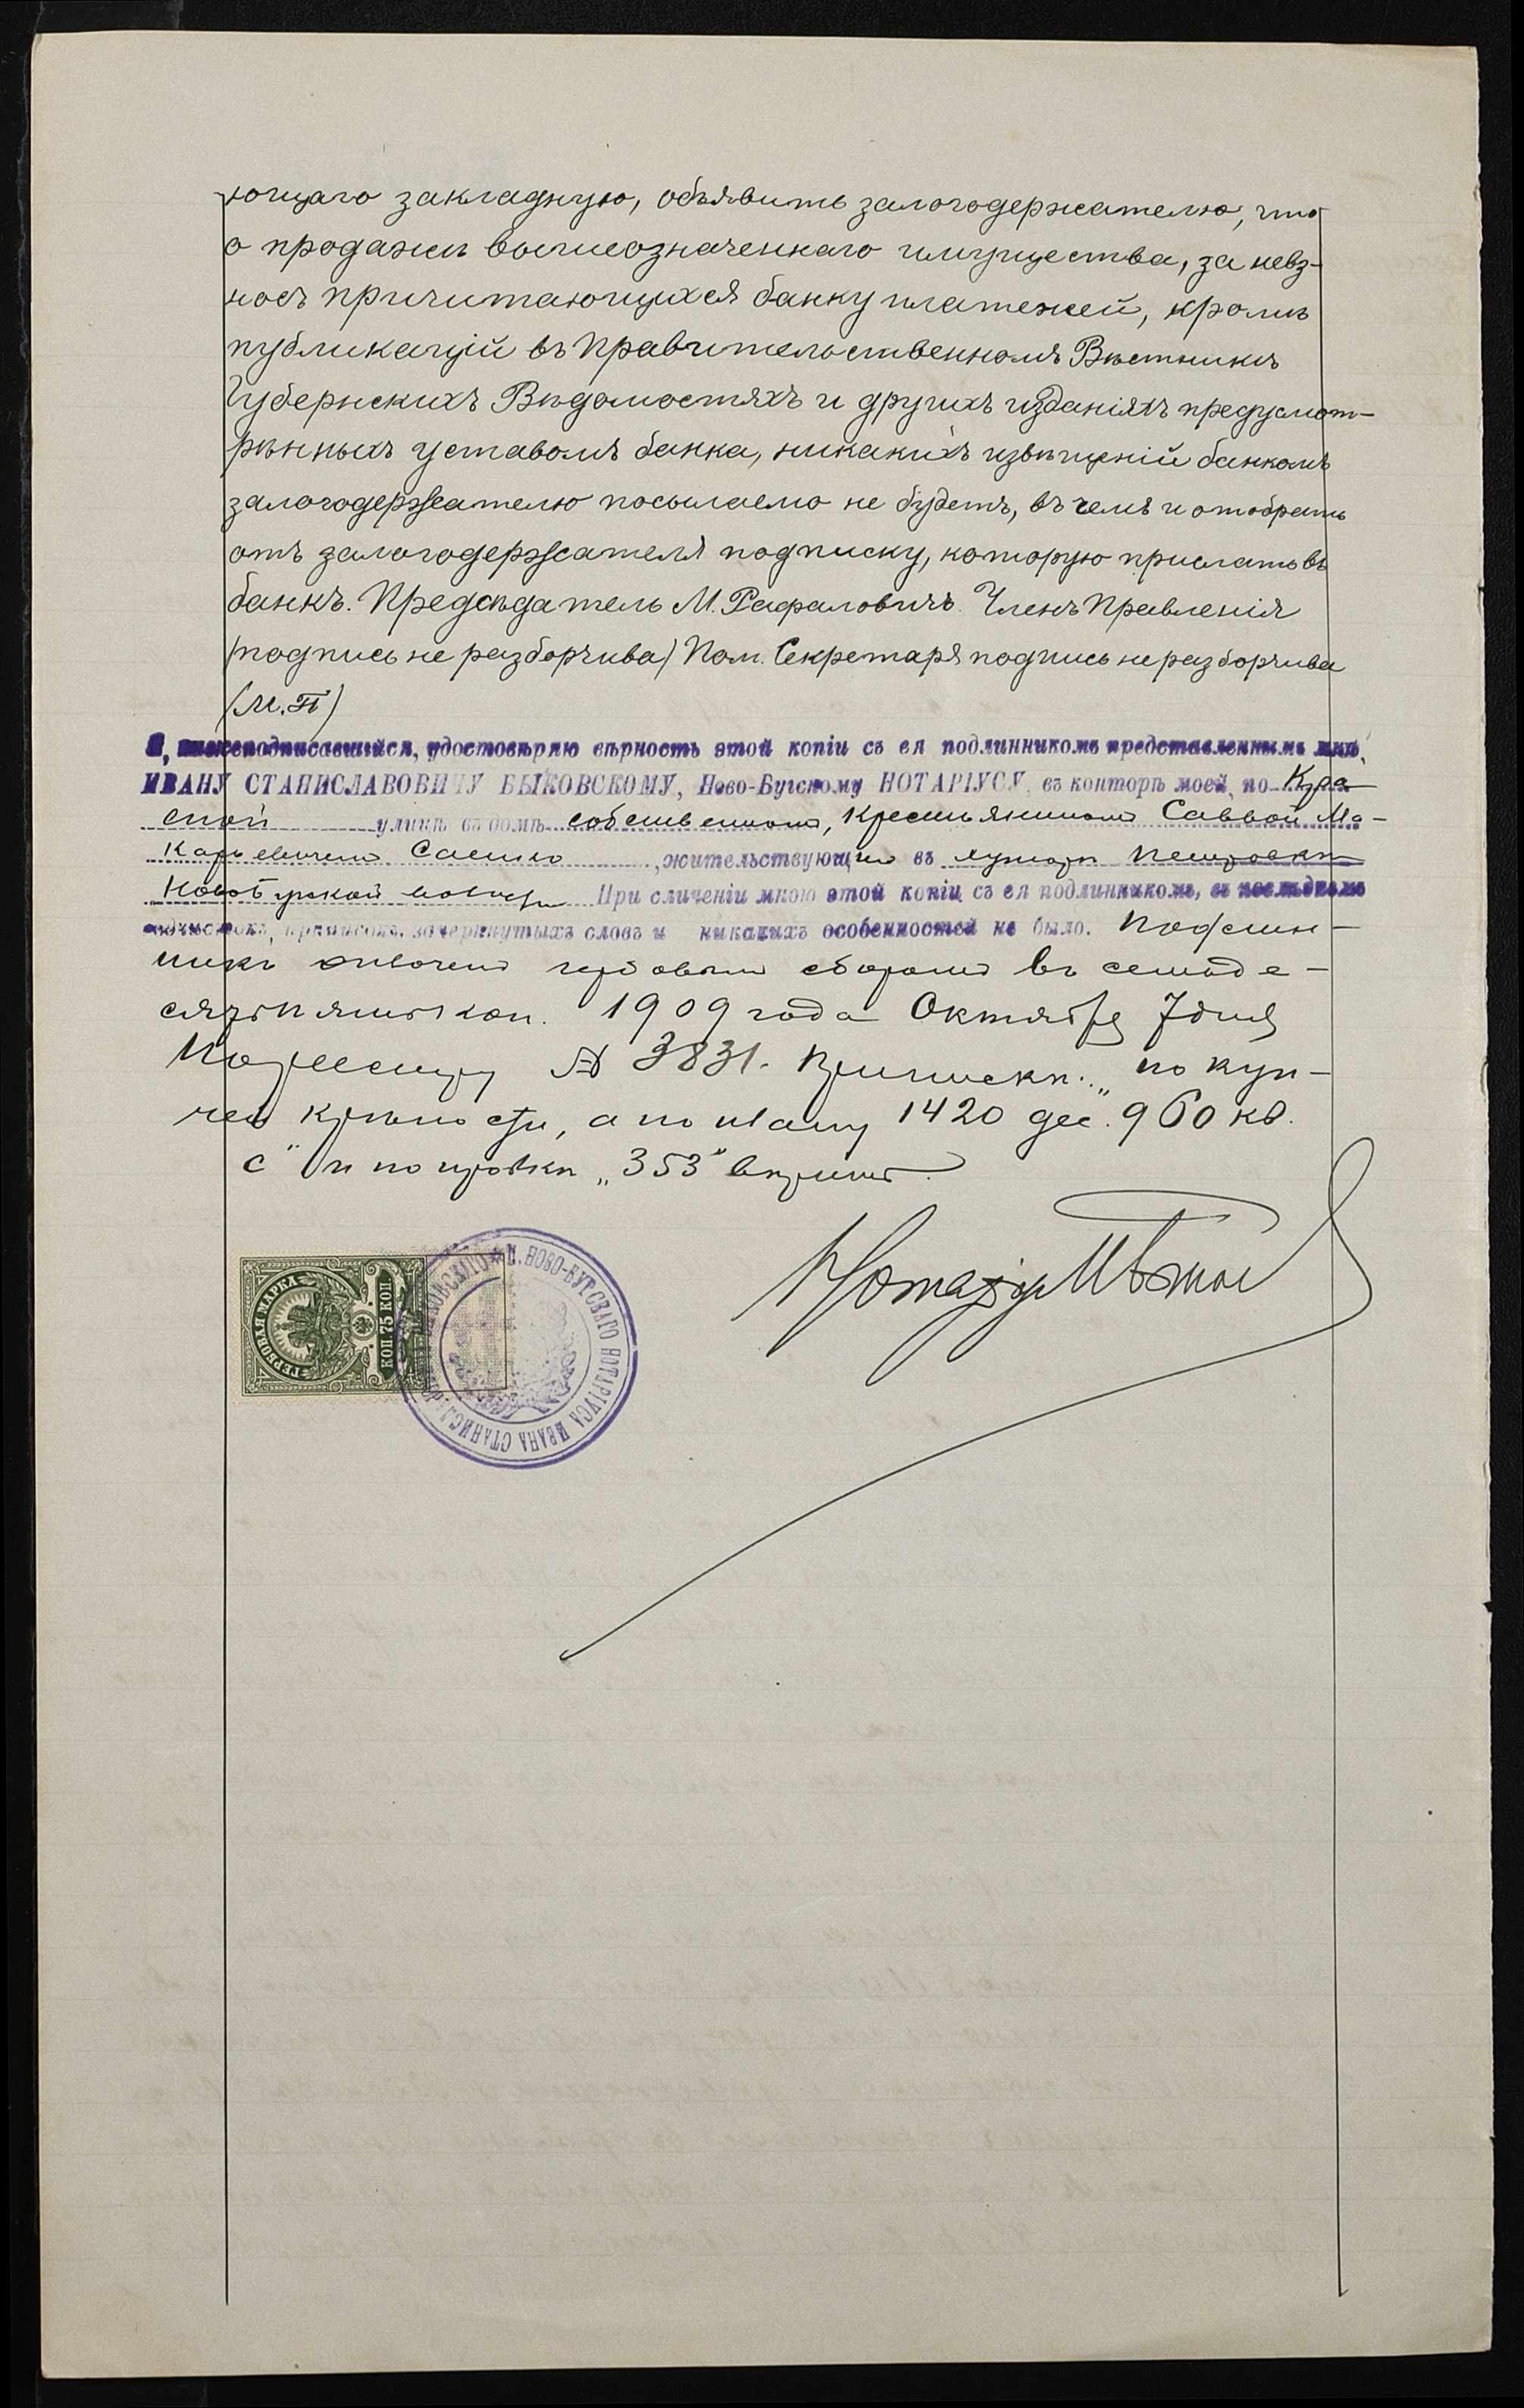 ющаго закладную, объявить залогодержателю, что
о продажѣ вышеозначеннаго имущества, за невз-
носъ причитающихся банку платежей, кромѣ
публикацій въ Правительственномъ Вѣстникѣ
Губернскихъ Вѣдомостяхъ и другихъ изданіяхъ предусмот-
рѣнныхъ уставомъ банка, никакихъ извѣщеній банкомъ
залогодержателю посылаемо не будетъ, въ чемъ и отобрать
отъ залогодержателя подписку, которую прислать въ
банкъ. Предсѣдатель М. Рафаловичъ. Членъ Правленія
(подпись не разборчива) Пом. Секретаря подпись не разборчива
(М.П)
Я, нижеподписавшійся, удостовѣряю вѣрность этой копіи съ ея подлинникомъ представленнымъ мнѣ,
ИВАНУ СТАНИСЛАВОВИЧУ БЫКОВСКОМУ, Ново-Бугскому НОТАРІУСУ, въ конторѣ моей, по
улицѣ въ домѣ собственномъ, крестьяниномъ Саввой Ма-
карьевичемъ Саенко, жительствующимъ въ хуторѣ Петровкѣ
Новобугской волости При сличеніи мною этой копіи съ ея подлинникомъ, въ послѣднемъ
подчистокъ, приписокъ, зачеркнутыхъ словъ и никакихъ особенностей не было. Подлин-
никъ оплоченъ гербовымъ сборомъ въ семьде-
сятъ пять коп. 1909 года Октября 7 дня
По реестру № 3831. Приписки: „по куп-
чей крѣпости, а по плану 1420 дес. 960 кв.
с" и поправки „353" вѣрить.
Нотаріусъ
ГЕРБОВАЯ МАРКА
КОП 75 КОП
П. НОВО-БУГСКАГО НОТАРІУСА ИВАНА СТАНИСЛ. БЫКОВСКАГО